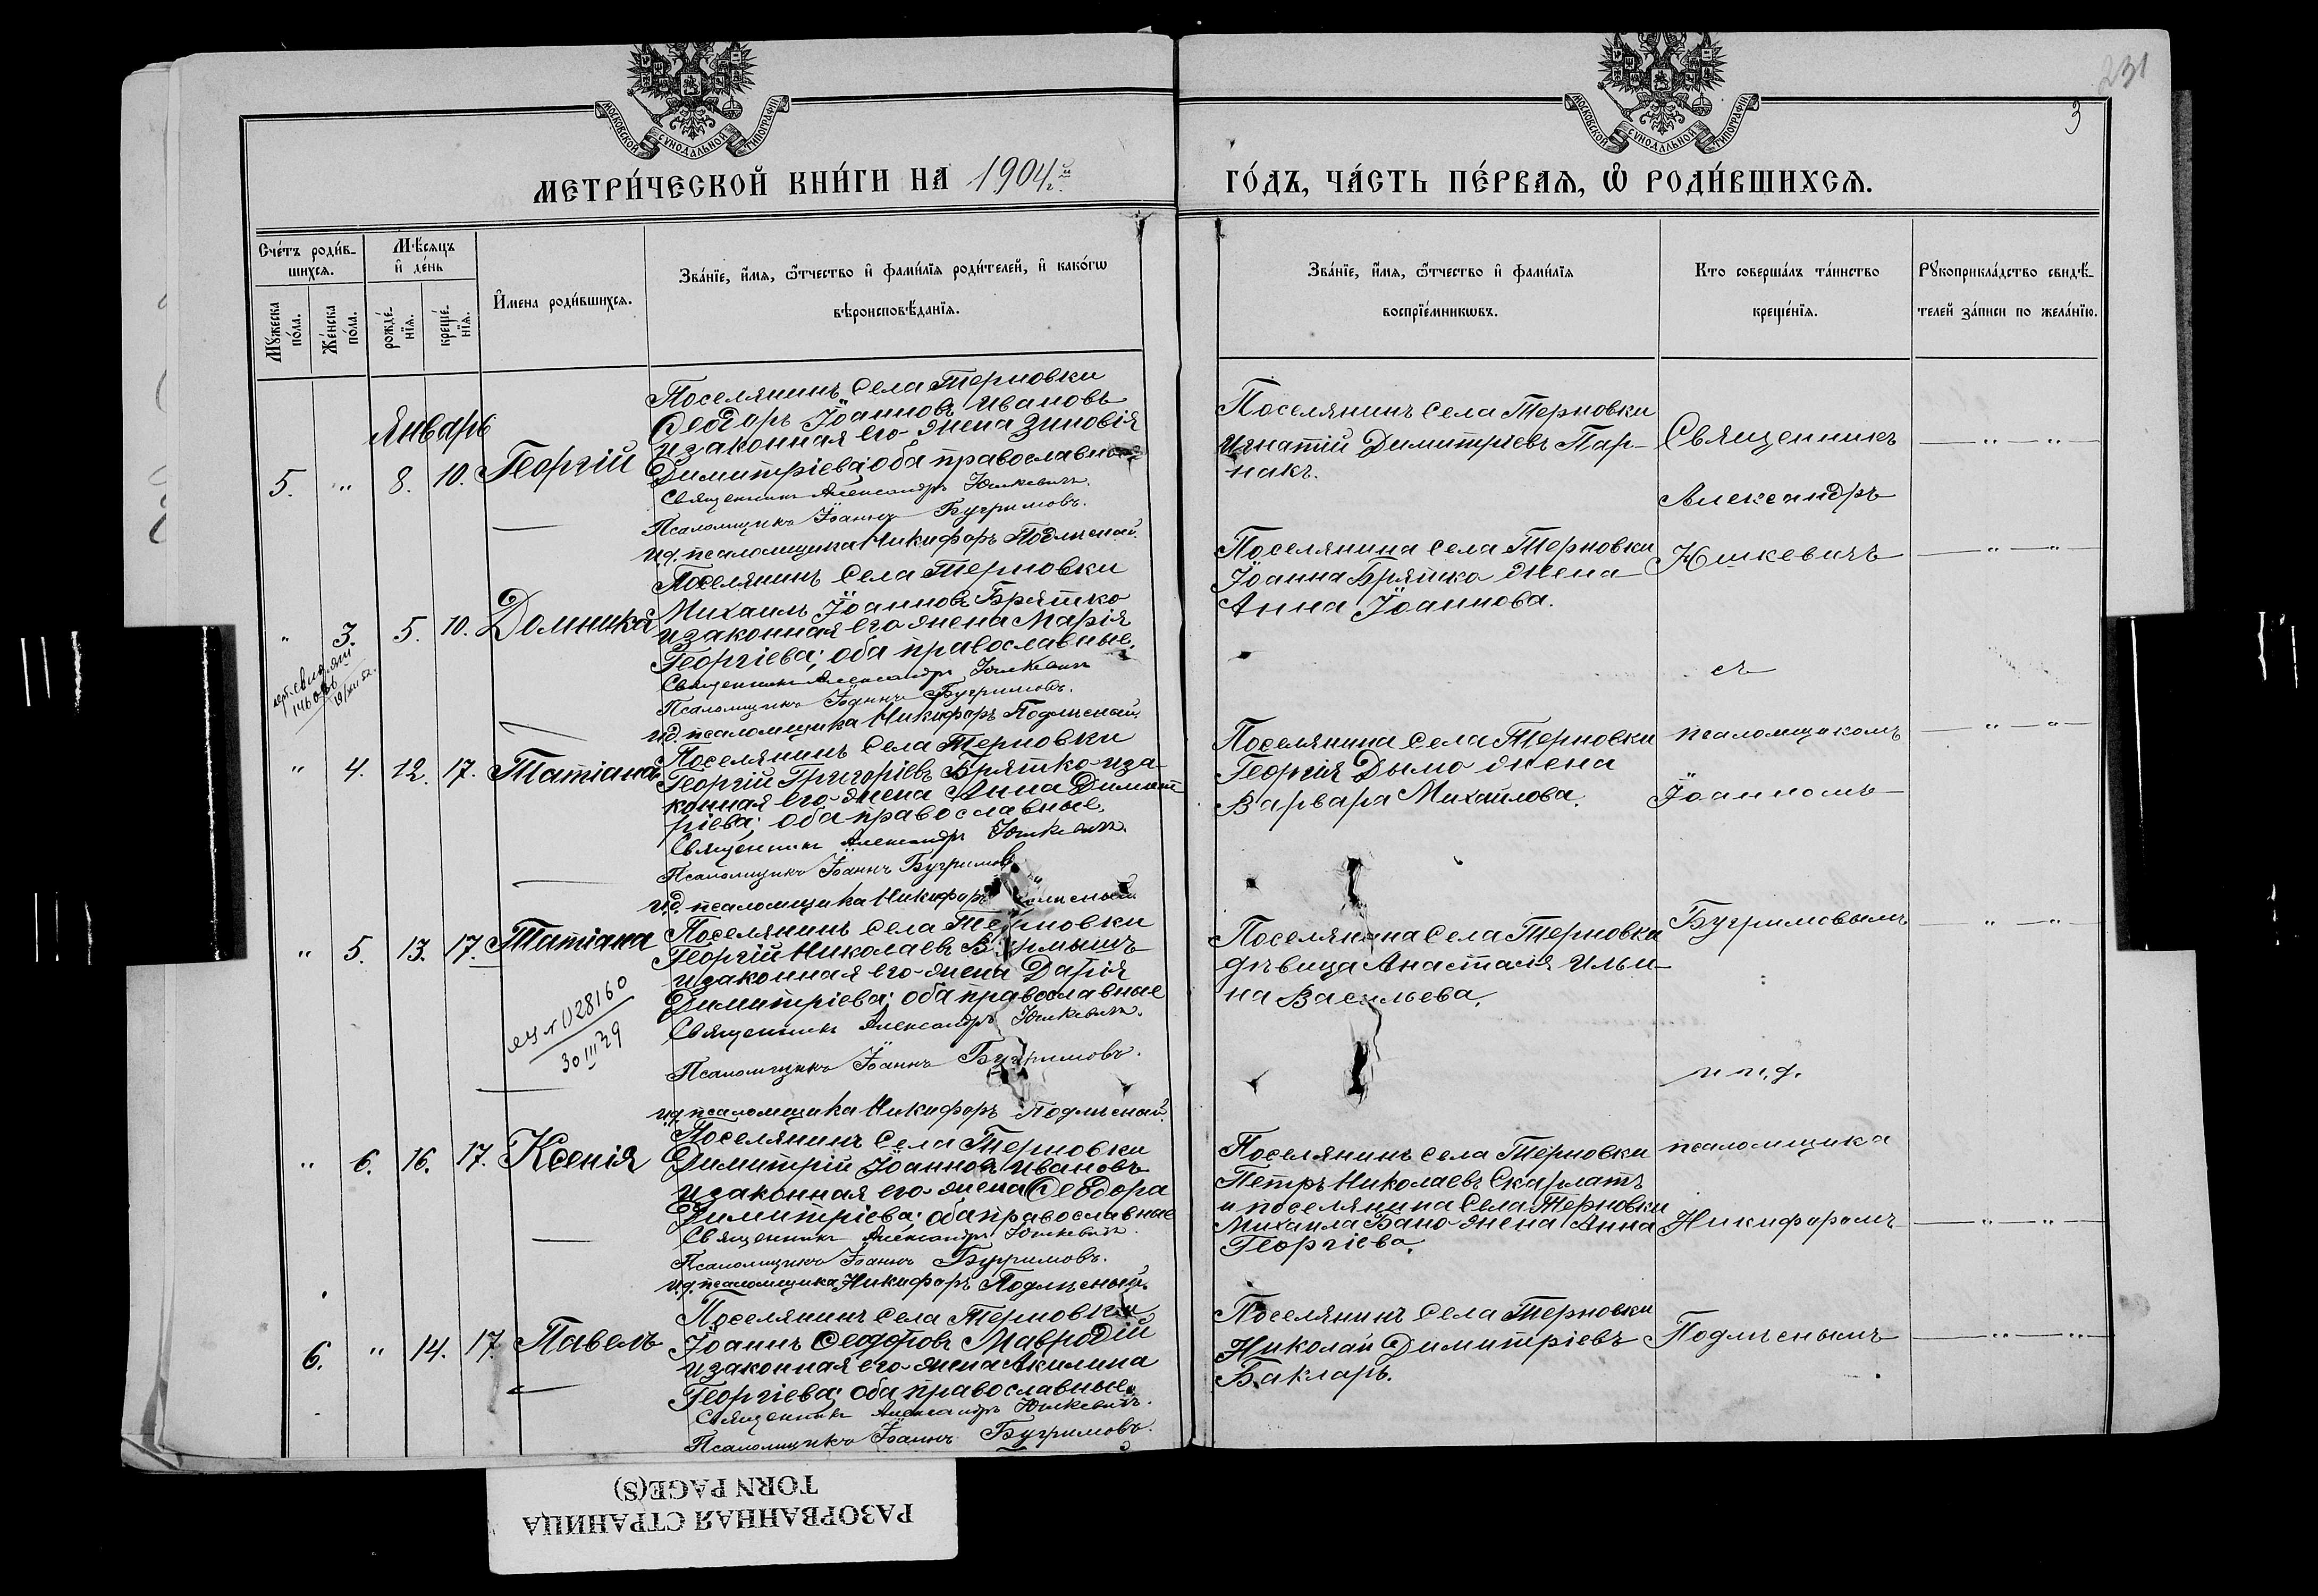 231
3
МОСКОВСКОЙ СѴНОДАЛЬНОЙ ТИПОГРАФІИ
МОСКОВСКОЙ СѴНОДАЛЬНОЙ ТИПОГРАФІИ
МЕТРИ́ЧЕСКОЙ КНИ́ГИ НА 1904й г.
ГО́ДЪ, ЧА́СТЬ ПЕ́РВАѦ, Ѽ РОДИ́ВШИХСѦ.
Сче́тъ роди́в-
шихсѧ.
Мꙋ́жеска по́ла.
Же́нска по́ла.
Мѣ́сѧцъ
и҆ де́нь
рожде́-
нїѧ.
креще́-
нїѧ.
И҆́мена роди́вшихсѧ.
Зва́нїе, и҆́мѧ, ѻ҆́тчество и҆ фами́лїѧ роди́телей, и҆ како́гѡ
вѣроисповѣ́данїѧ.
Зва́нїе, и҆́мѧ, ѻ҆́тчество и҆ фами́лїѧ
воспрїе́мникѡвъ.
Кто соверша́лъ та́инство
креще́нїѧ.
Рꙋкоприкла́дство свидѣ́-
телей за́писи по жела́нїю.
Январь
5. " 8. 10. Георгій
Поселянинъ села Терновки
Ѳеодоръ Іоанновъ Ивановъ
и законная его жена Зиновія
Димитріева; оба православные
Священникъ Александръ Юшкевичъ.
Псаломщикъ Іоаннъ Бугримовъ.
и.д. псаломщика Никифоръ Подлѣсный.
Поселянинъ села Терновки
Игнатій Димитріевъ Пар-
накъ.
Священникъ
Александръ
Юшкевичъ
съ
псаломщикомъ
Іоанномъ
Бугримовымъ
и и.д.
псаломщика
Никифоромъ
Подлѣснымъ
" 3. 5. 10. Домникія
146086
Поселянинъ села Терновки
Михаилъ Іоанновъ Брятко
и законная его жена Марія
Георгіева; оба православные.
Священникъ Александръ Юшкевичъ
Псаломщикъ Іоаннъ Бугримовъ.
и.д. псаломщика Никифоръ Подлѣсный.
Поселянина села Терновки
Іоанна Брятко жена
Анна Іоаннова.
" 4. 12. 17. Татіана
Поселянинъ села Терновки
Георгій Григоріевъ Брятко и за-
конная его жена Анна Димит-
ріева; оба православные.
Священникъ Александръ Юшкевичъ.
Псаломщикъ Іоаннъ Бугримовъ
и.д. псаломщика Никифоръ Подлѣсный
Поселянина села Терновки
Георгія Дымо жена
Варвара Михайлова.
" 5. 13. 17. Татіана
028160
30 III 29
Поселянинъ села Терновки
Георгій Николаевъ
и законная его жена Дарія
Димитріева; оба православные
Священникъ Александръ Юшкевичъ.
Псаломщикъ Іоаннъ Бугримовъ.
и.д. псаломщика Никифоръ Подлѣсный.
Поселянина села Терновки
дѣвица Анастасія Ильи-
на Васильева.
" 6. 16. 17. Ксенія
Поселянинъ села Терновки
Димитрій Іоанновъ Ивановъ
и законная его жена Ѳеодора
Димитріева; оба православные
Священникъ Александръ Юшкевичъ.
Псаломщикъ Іоаннъ Бугримовъ.
и.д. псаломщика Никифоръ Подлѣсный.
Поселянинъ села Терновки
Петръ Николаевъ Скарлатъ
и поселянина села Терновки
Михаила Бано жена Анна
Георгіева.
6. " 14. 17. Павелъ
Поселянинъ села Терновки
Іоаннъ Ѳеодоровъ Мавродій
и законная его жена Акилина
Георгіева; оба православные.
Священникъ Александръ Юшкевичъ.
Псаломщикъ Іоаннъ Бугримовъ.
Поселянинъ села Терновки
Николай Димитріевъ
Бакларъ.
РАЗОРВАННАЯ СТРАНИЦА
TORN PAGE(S)